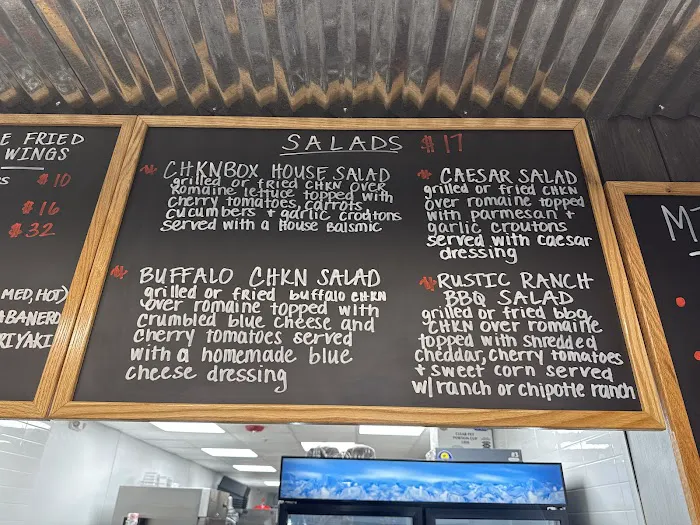 E FRIED
WINGS
$10
$16
$32
MED, HOT)
ABANERO
RIYAKI
SALADS $17
CHKNBOX HOUSE SALAD
grilled or fried CHKN over
romaine lettuce topped with
cherry tomatoes, carrots,
cucumbers + garlic croutons
served with a House Balsmic
BUFFALO CHKN SALAD
grilled or fried buffalo CHKN
over romaine topped with
crumbled blue cheese and
cherry tomatoes served
with a homemade blue
cheese dressing
CAESAR SALAD
grilled or fried CHKN
over romaine topped
with parmesan +
garlic croutons
served with caesar
dressing
RUSTIC RANCH
BBQ SALAD
grilled or fried bbq
CHKN over romaine
topped with shredded
cheddar, cherry tomatoes
+ sweet corn served
w/ranch or chipotle ranch